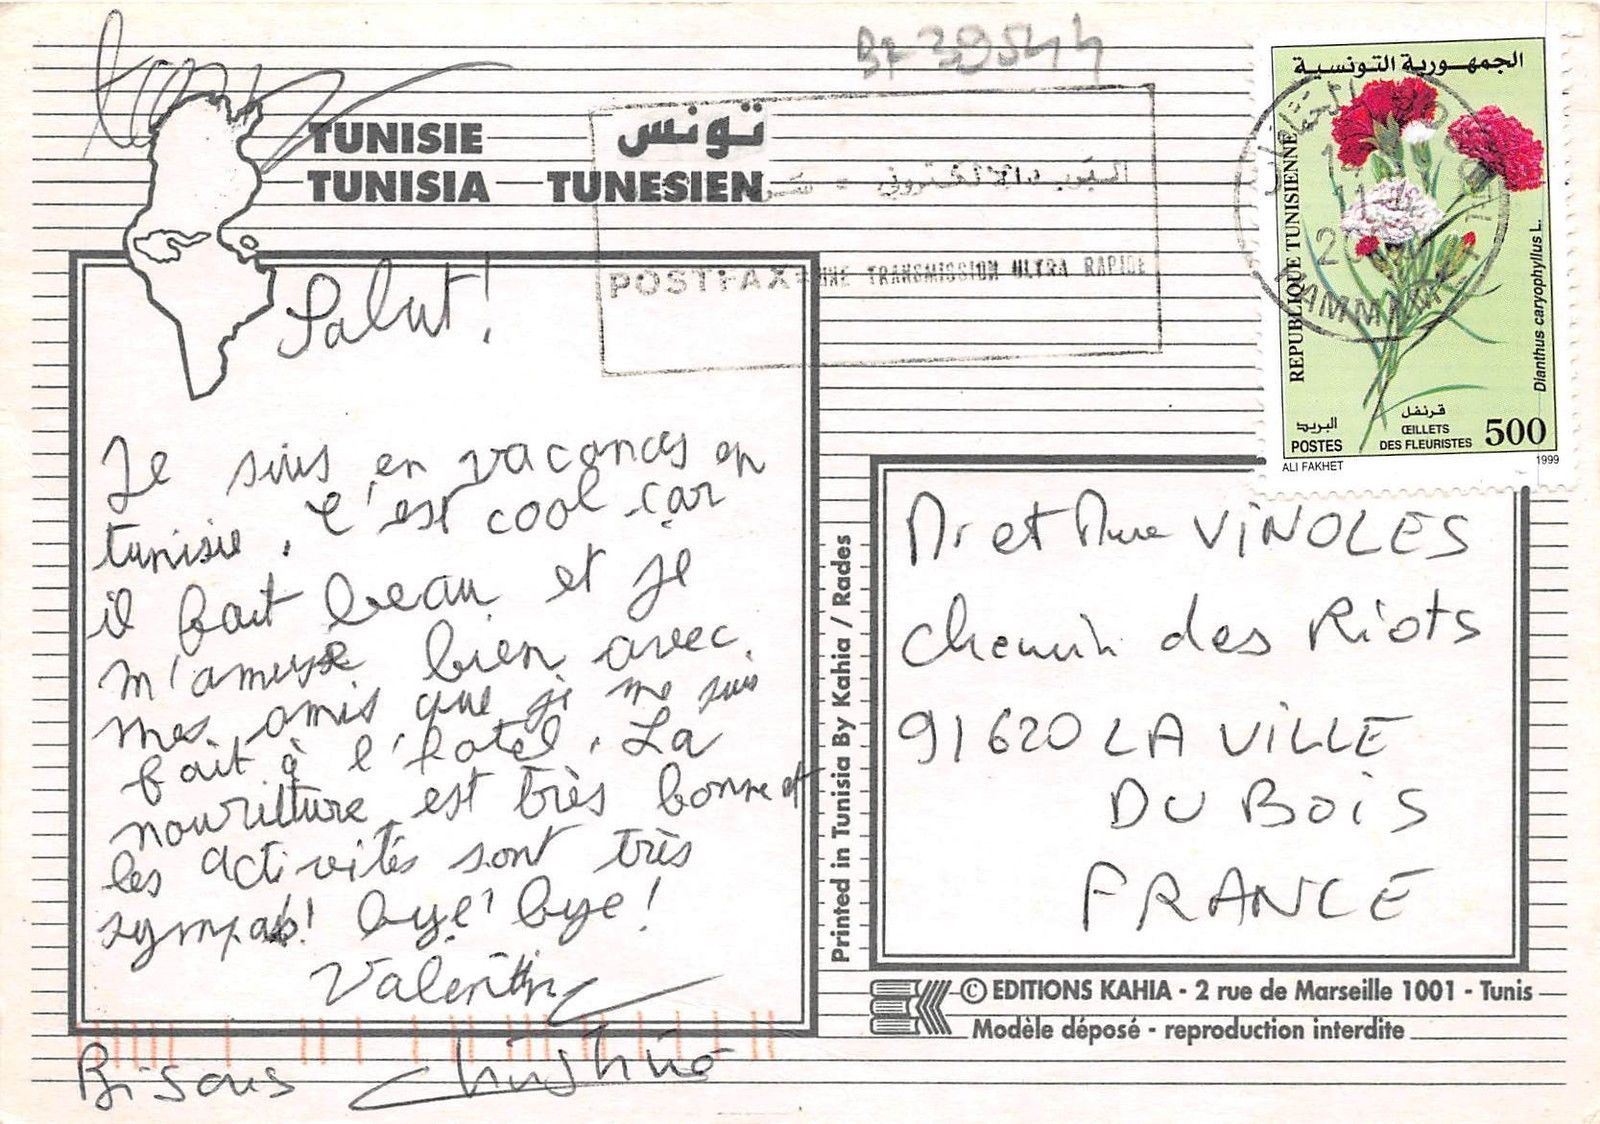 TUNISIE
تونس
TUNISIA
TUNESIEN
POSTFAX UNE TRANSMISSION ULTRA RAPIDE
الجمهورية التونسية
REPUBLIQUE TUNISIENNE
Dianthus caryophyllus L.
البريد
POSTES
قرنفل
ŒILLETS
DES FLEURISTES
500
ALI FAKHET
1999
Salut!
Je suis en vacances en
tunisie. C'est cool car
il fait beau et je
m'amuse bien avec
mes amis que je me suis
fait à l'hotel. La
nourriture est très bonne et
les activités sont très
sympas! bye! bye!
Valentin
Bisous Christine
Printed in Tunisia By Kahia / Rades
Mr et Mme VINOLES
chemin des Riots
91620 LA VILLE
DU BOIS
FRANCE
© EDITIONS KAHIA - 2 rue de Marseille 1001 - Tunis
Modèle déposé - reproduction interdite